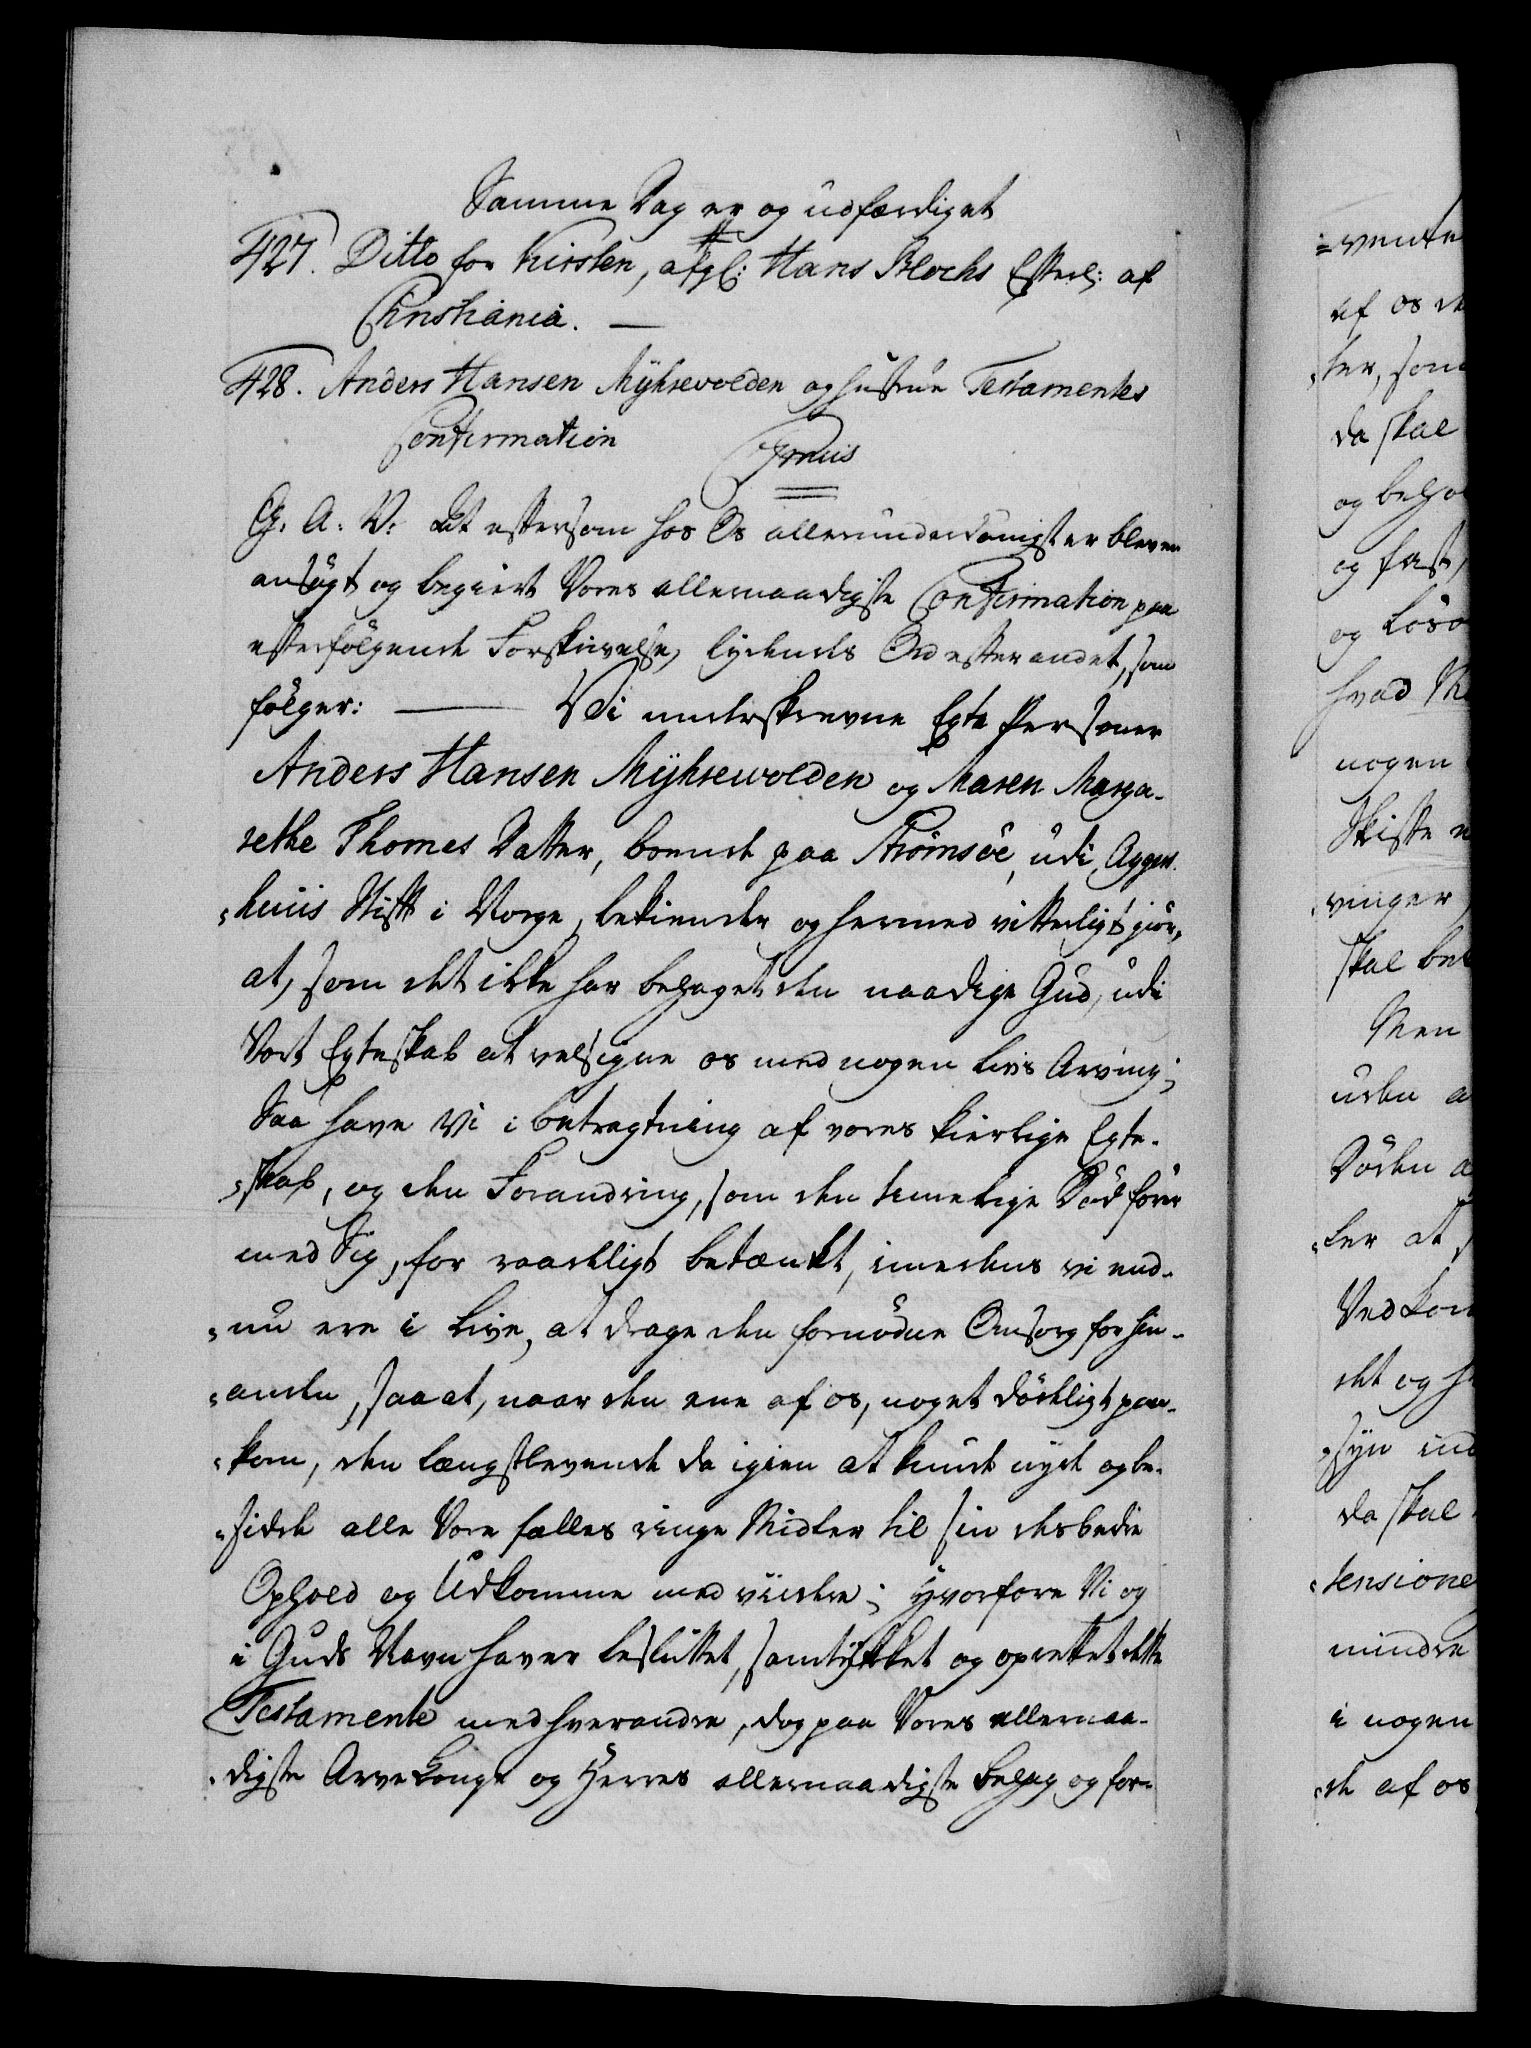 Samme Dag er og udfærdiget
427. Ditto for Kirsten, afgl: Hans Blochs Efterl: af
Christiania. —
428. Anders Hansen Mÿhrewolden og Hustrue Testamentes
Confirmation Gratis
G. A. V. At eftersom hos Os allerunderdanigst er bleven
ansøgt og begiert Vores allernaadigste Confirmation paa
efterfølgende Forskrivelse, lydende Ord efter andet, som
følger: — Vi underskrevne Egte Personer
Anders Hansen Mÿhrewolden og Maren Marga-
rethe Thomes Datter, boende paa Strømsøe, udi Agger-
huus Stift i Norge, bekiender og hermed vitterligt giør,
at, som det ikke har behaget den naadige Gud, udi
Vort Egteskab at velsigne os med nogen Livs Arving;
Saa have Vi i betragtning af vores kierlige Egte-
skab, og den Forandring, som den timelige Død fører
med Sig, for raadeligt betænkt, imedens vi end-
nu ere i Live, at drage den fornødne Omsorg for hin-
anden, saa at, naar den ene af os, noget dødeligt paa-
kom, den længstlevende da igien at kunde nyde og be-
sidde alle Vore fælles ringe Midler til sin desbedre
Ophold og Udkomme med viidere; Hvorfore Vi og
i Guds Navn haver besluttet, samtÿkket og oprettet dette
Testamente med hverandre, dog paa Vores allernaa-
digste Arve Konges og Herres allernaadigste behag og for-
vente
af os de
ter, som
da skal
og beho
og fast,
og Løsø
hvad
nogen
Skifte
ringer
skal be
Men
uden a
Døden
ler at
Vedkom
det og
syn
da skal
tensione
mindre
i nogen
de af os